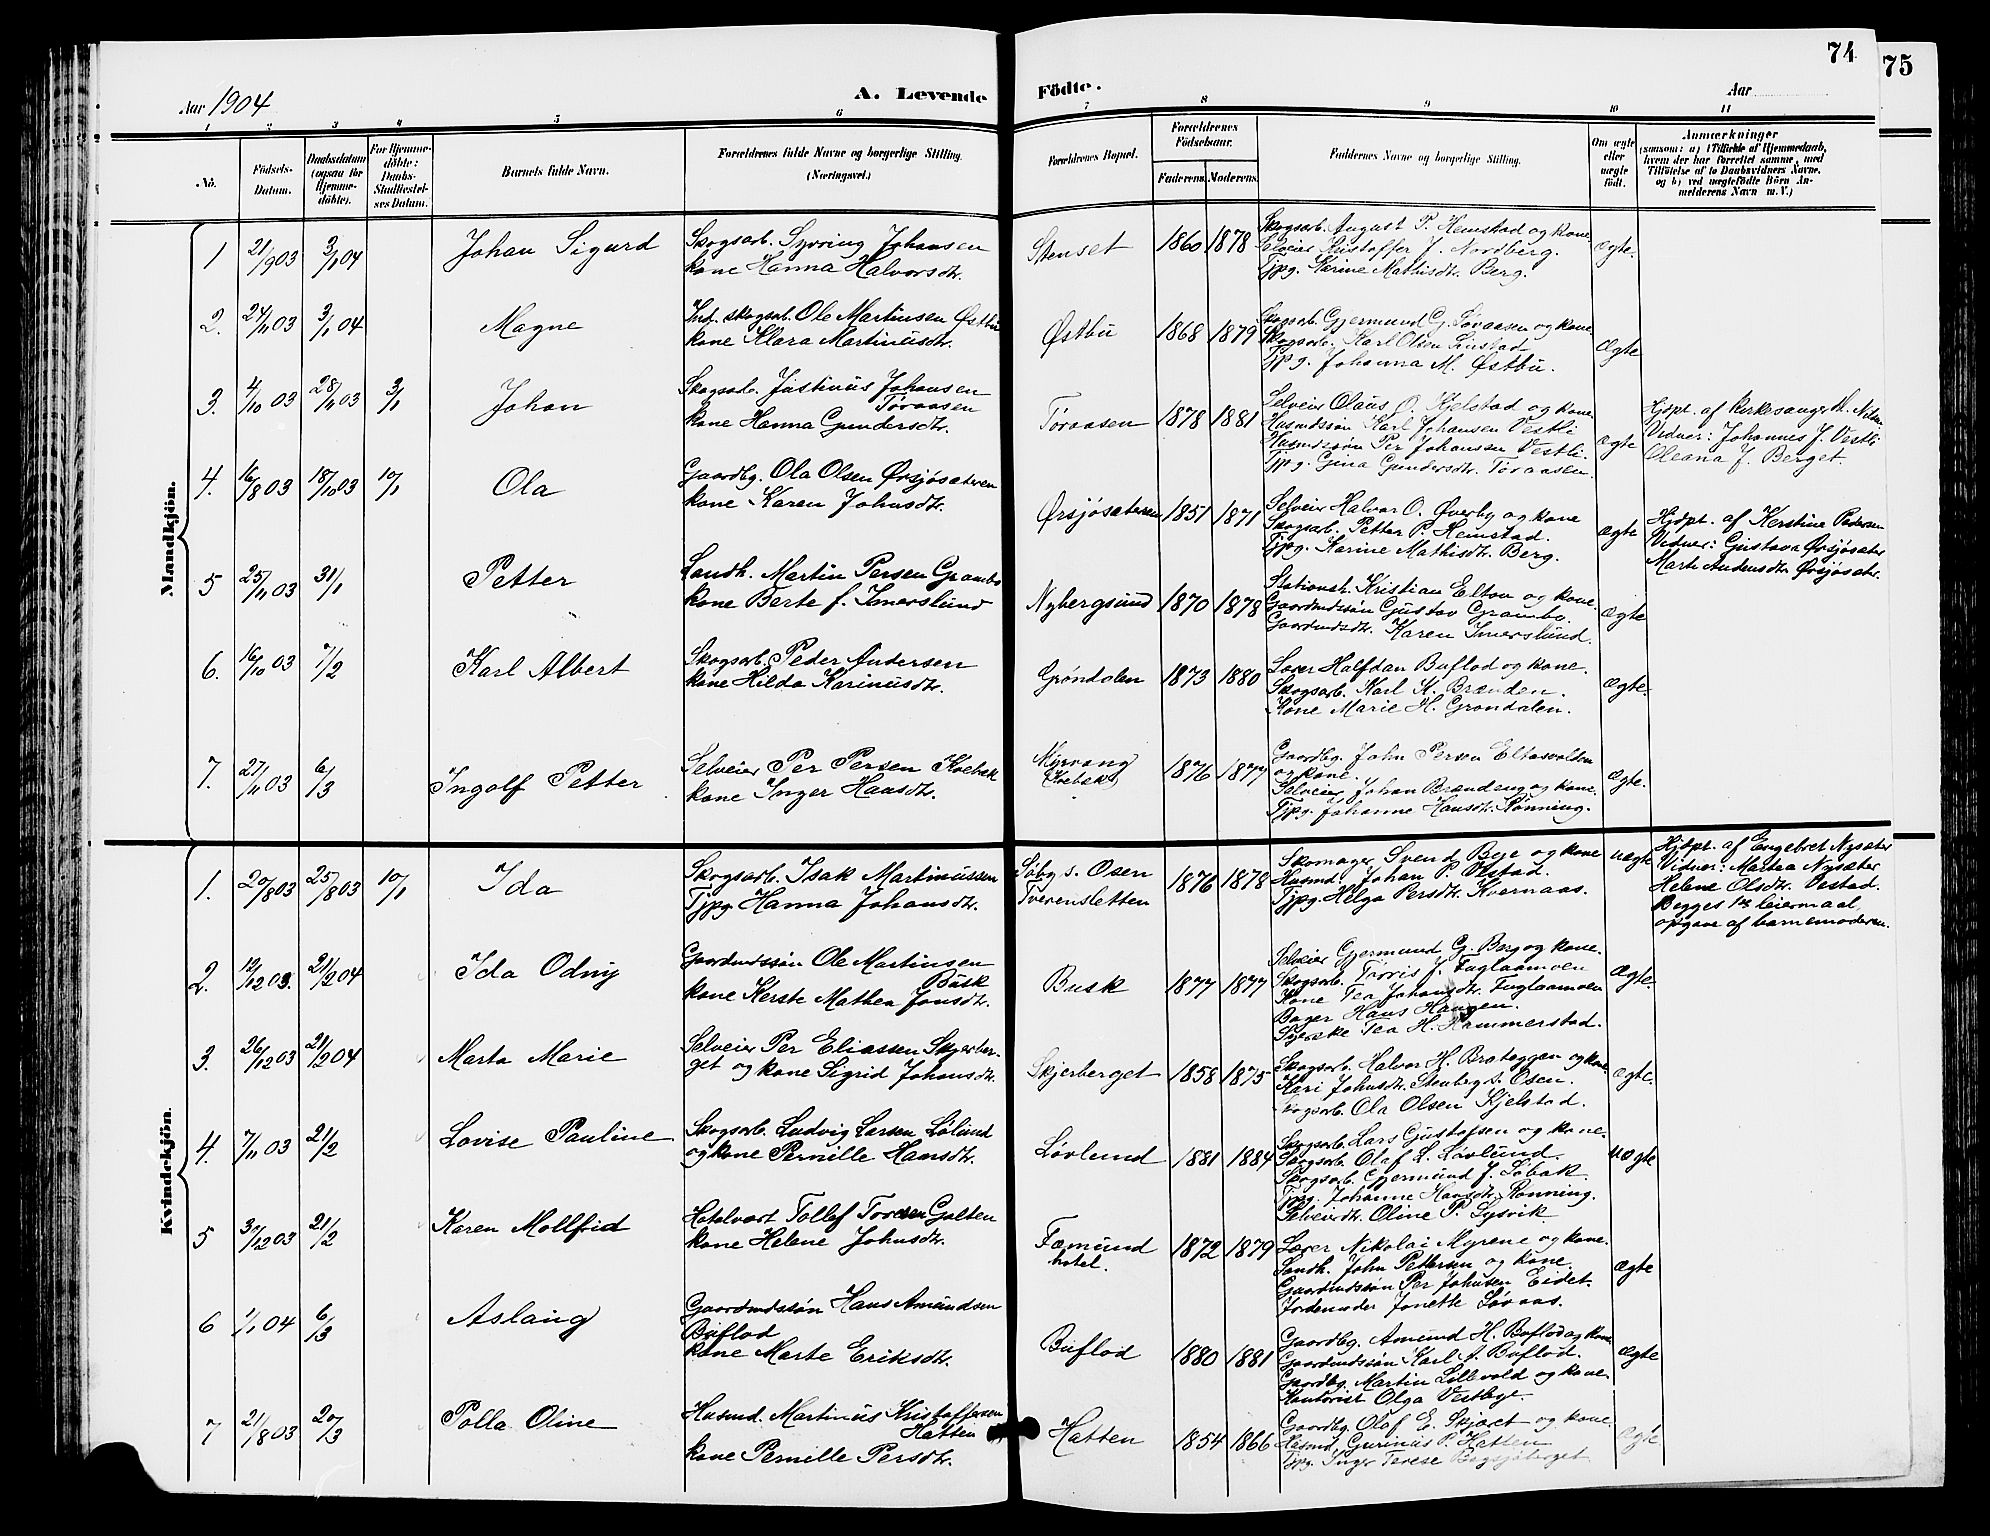 74
75
Aar 1904
A. Levende Födte.
Aar
1 2 3 4 5 6 7 8 9 10 11
No.
Födsels-Datum.
Daabsdatum (ogsaa for Hjemme-döbte).
For Hjemme-döbte: Daabs-Stadfæstel-ses Datum.
Barnets fulde Navn.
Forældrenes fulde Navne og borgerlige Stilling. (Næringsvei.)
Forældrenes Bopæl.
Forældrenes Födselsaar.
Faderens. Moderens.
Faddernes Navne og borgerlige Stilling.
Om ægte eller uægte födt.
Anmærkninger
(saasom: a) i Tilfælde af Hjemmedaab, hvem der har forrettet samme, med Tilföielse af to Daabsvidners Navne, og b) ved uægtefödte Börn An-melderens Navn m. V.)
Mandkjön.
1 21/9 03 3/1 04 Johan Sigurd
Skogsarb. Syvring Johansen
kone Hanna Halvorsdtr.
Stenset 1860 1878
Skogsarb. August P. Hemstad og kone
Selveier Kristoffer J. Nordberg.
Tjpg. Karine Mathisdtr. Berg.
ægte.
2. 24/11 03 3/1 04 Magne
Ind. skogsarb. Ole Martinsen Østbu
kone Klara Martinusdtr.
Østbu 1868 1879
Skogsarb. Gjermund G. Toraasen og kone.
Skogsarb. Karl Olsen
Tjpg. Johanna M. Østbu.
ægte
3. 4/10 03 28/11 03 3/1 Johan
Skogsarb. Justinus Johansen
Toraasen
kone Hanna Gundersdtr.
Toraasen 1878 1881
Selveier Olaus O. Kjelstad og kone.
Husmdssøn Karl Johansen Vestli
Husmdssøn Per Johansen Vestli.
Tjpg. Gina Gundersdtr. Toraasen.
ægte
Hjdpt. af Kirkesanger M.
Vidner: Johannes J. Vestli
Oleana J. Berget.
4. 16/8 03 18/10 03 10/1 Ola
Gaardbg. Ola Olsen Ørsjøsæteren
kone Karen Johnsdtr.
Ørsjøsæteren 1851 1871
Selveier Halvor O. Øverby og kone
Skogsarb. Petter P. Hemstad.
Tjpg. Karine Mathisdtr. Berg.
ægte
Hjdpt. af Kerstine Pedersen
Vidner: Gustava Ørsjøsæter
Marte Andersdtr. Ørsjøsæter.
5 25/11 03 31/1 Petter
Landh. Martin Persen Grambo
kone Berte f. Imerslund
Nybergsund 1870 1878
Stationsh. Kristian Elton og kone.
Gaardmdssøn Gustav Grambo.
Gaardmdsdtr. Karen Imerslund.
ægte
6. 16/10 03 7/2 Karl Albert
Skogsarb. Peder Andersen
kone Hilda Karinusdtr.
Grøndalen 1873 1880
Lærer Halfdan Buflod og kone.
Skogsarb. Karl K. Brænden.
Kone Marie H. Grøndalen.
ægte.
7. 27/11 03 6/3 Ingolf Petter
Selveier Per Persen Kvebæk
kone Inger Hansdtr.
Myrvang
(Kvebæk) 1876 1877
Gaardbg. John Persen Eltasvolden
og kone.
Selveier Johan Brænden og kone.
Tjpg. Johanne Hansdtr. Rønning.
ægte.
Kvindekjön.
1. 20/8 03 25/8 03 10/1 Ida
Skogsarb. Isak Martinussen
Tjpg. Hanna Johansdtr.
Søbg s. Osen
Tverensletten 1876 1878
Skomager Svend Bye og kone
Husmd. Johan P. Olstad.
Tjpg. Helga Persdtr. Kvernaas.
uægte
Hjdpt. af Engebret Nysæter
Vidner: Martea Nysæter
Helene Olsdtr. Vestad.
Begges 1ste leiermaal,
opgave af barnemoderen.
2. 12/12 03. 21/2 04 Ida Odny
Gaardmdssøn Ole Martinsen
Busk
kone Kerste Mathea Jonsdtr.
Busk 1877 1877
Selveier Gjermund G. Berg og kone.
Skogsarb. Torris J. Fuglaamoen
Kone Tea Johansdtr. Fuglaamoen
Bager Hans Haugen.
Syerske Tea H. Hammerstad.
ægte.
3. 26/12 03 21/2 04 Marta Marie
Selveier Per Eliassen Skjerber-
get og kone Sigrid Johansdtr.
Skjerberget 1858 1875
Skogsarb. Halvor H. Brataggen og kone
Kari Johnsdtr. Stenberg s. Osen.
Skogsarb. Ola Olsen Kjelstad.
ægte.
4. 7/11 03 21/2 Lovise Pauline
Skogsarb. Ludvig Larsen Lølund
og kone Pernille Hansdtr.
Løvlund 1881 1884
Skogsarb. Lars Gustafsen og kone.
Skogsarb. Olaf L. Løvlund.
Skogsarb. Gjermund J. Løbak
Tjpg. Johanne Hansdtr. Rønning.
Selveierdtr. Oline P. Lysvik.
uægte
5 3/12 03 21/2 Karen Mollfrid
Hotelvært Tollef Toresen Galten
kone Helene Johnsdtr.
Fæmund
hotel. 1872 1879
Lærer Nikolai Myrene og kone.
Landh. John Pettersen og kone.
Gaardmdssøn Per Johnsen Eidet.
Jordemoder Jonette Løvaas.
ægte
6 1/1 04 6/3 Aslaug
Gaardmdssøn Hans Amundsen
Buflod
kone Marte Eriksdtr.
Buflod 1880 1881
Gaardbg. Amund H. Buflod og kone
Gaardmdssøn Karl A. Buflod.
Gaardbg. Martin Lillevold og kone.
Kontorist Olga Vestbye.
ægte
7 21/8 03 20/3 Palla Oline
Husmd. Martinus Kristoffersen
Hatten
kone Pernille Persdtr.
Hatten 1854 1866
Gaardbg. Olaf E. Skjæret og kone.
Husmd. Gurinius P. Hatten
Tjpg. Inger Terese Bagsjøberget
ægte